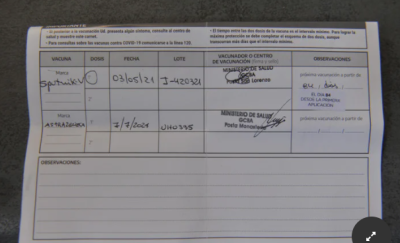 • Si posterior a la vacunación Ud. presenta algún síntoma, consulte al centro de
salud y muestre este carnet.
• Para consultas sobre las vacunas contra COVID-19 comunicarse a la línea 120.
• El tiempo entre las dos dosis de la vacuna es el intervalo mínimo. Para lograr la
máxima protección se debe completar el esquema de dos dosis, aunque
transcurran más días que el intervalo mínimo.
VACUNA
DOSIS
FECHA
LOTE
VACUNADOR O CENTRO
DE VACUNACIÓN (firma y sello)
OBSERVACIONES
Marca
Sputnik V
03/05/21
MINISTERIO DE SALUD
GCBA
Lorenzo
próxima vacunación a partir
de
EL DÍA
DESDE LA PRIMERA
APLICACIÓN
Marca
ASTRAZENECA
2°
7/7/2021
MINISTERIO DE SALUD
GCBA
próxima vacunación a partir
de
OBSERVACIONES: